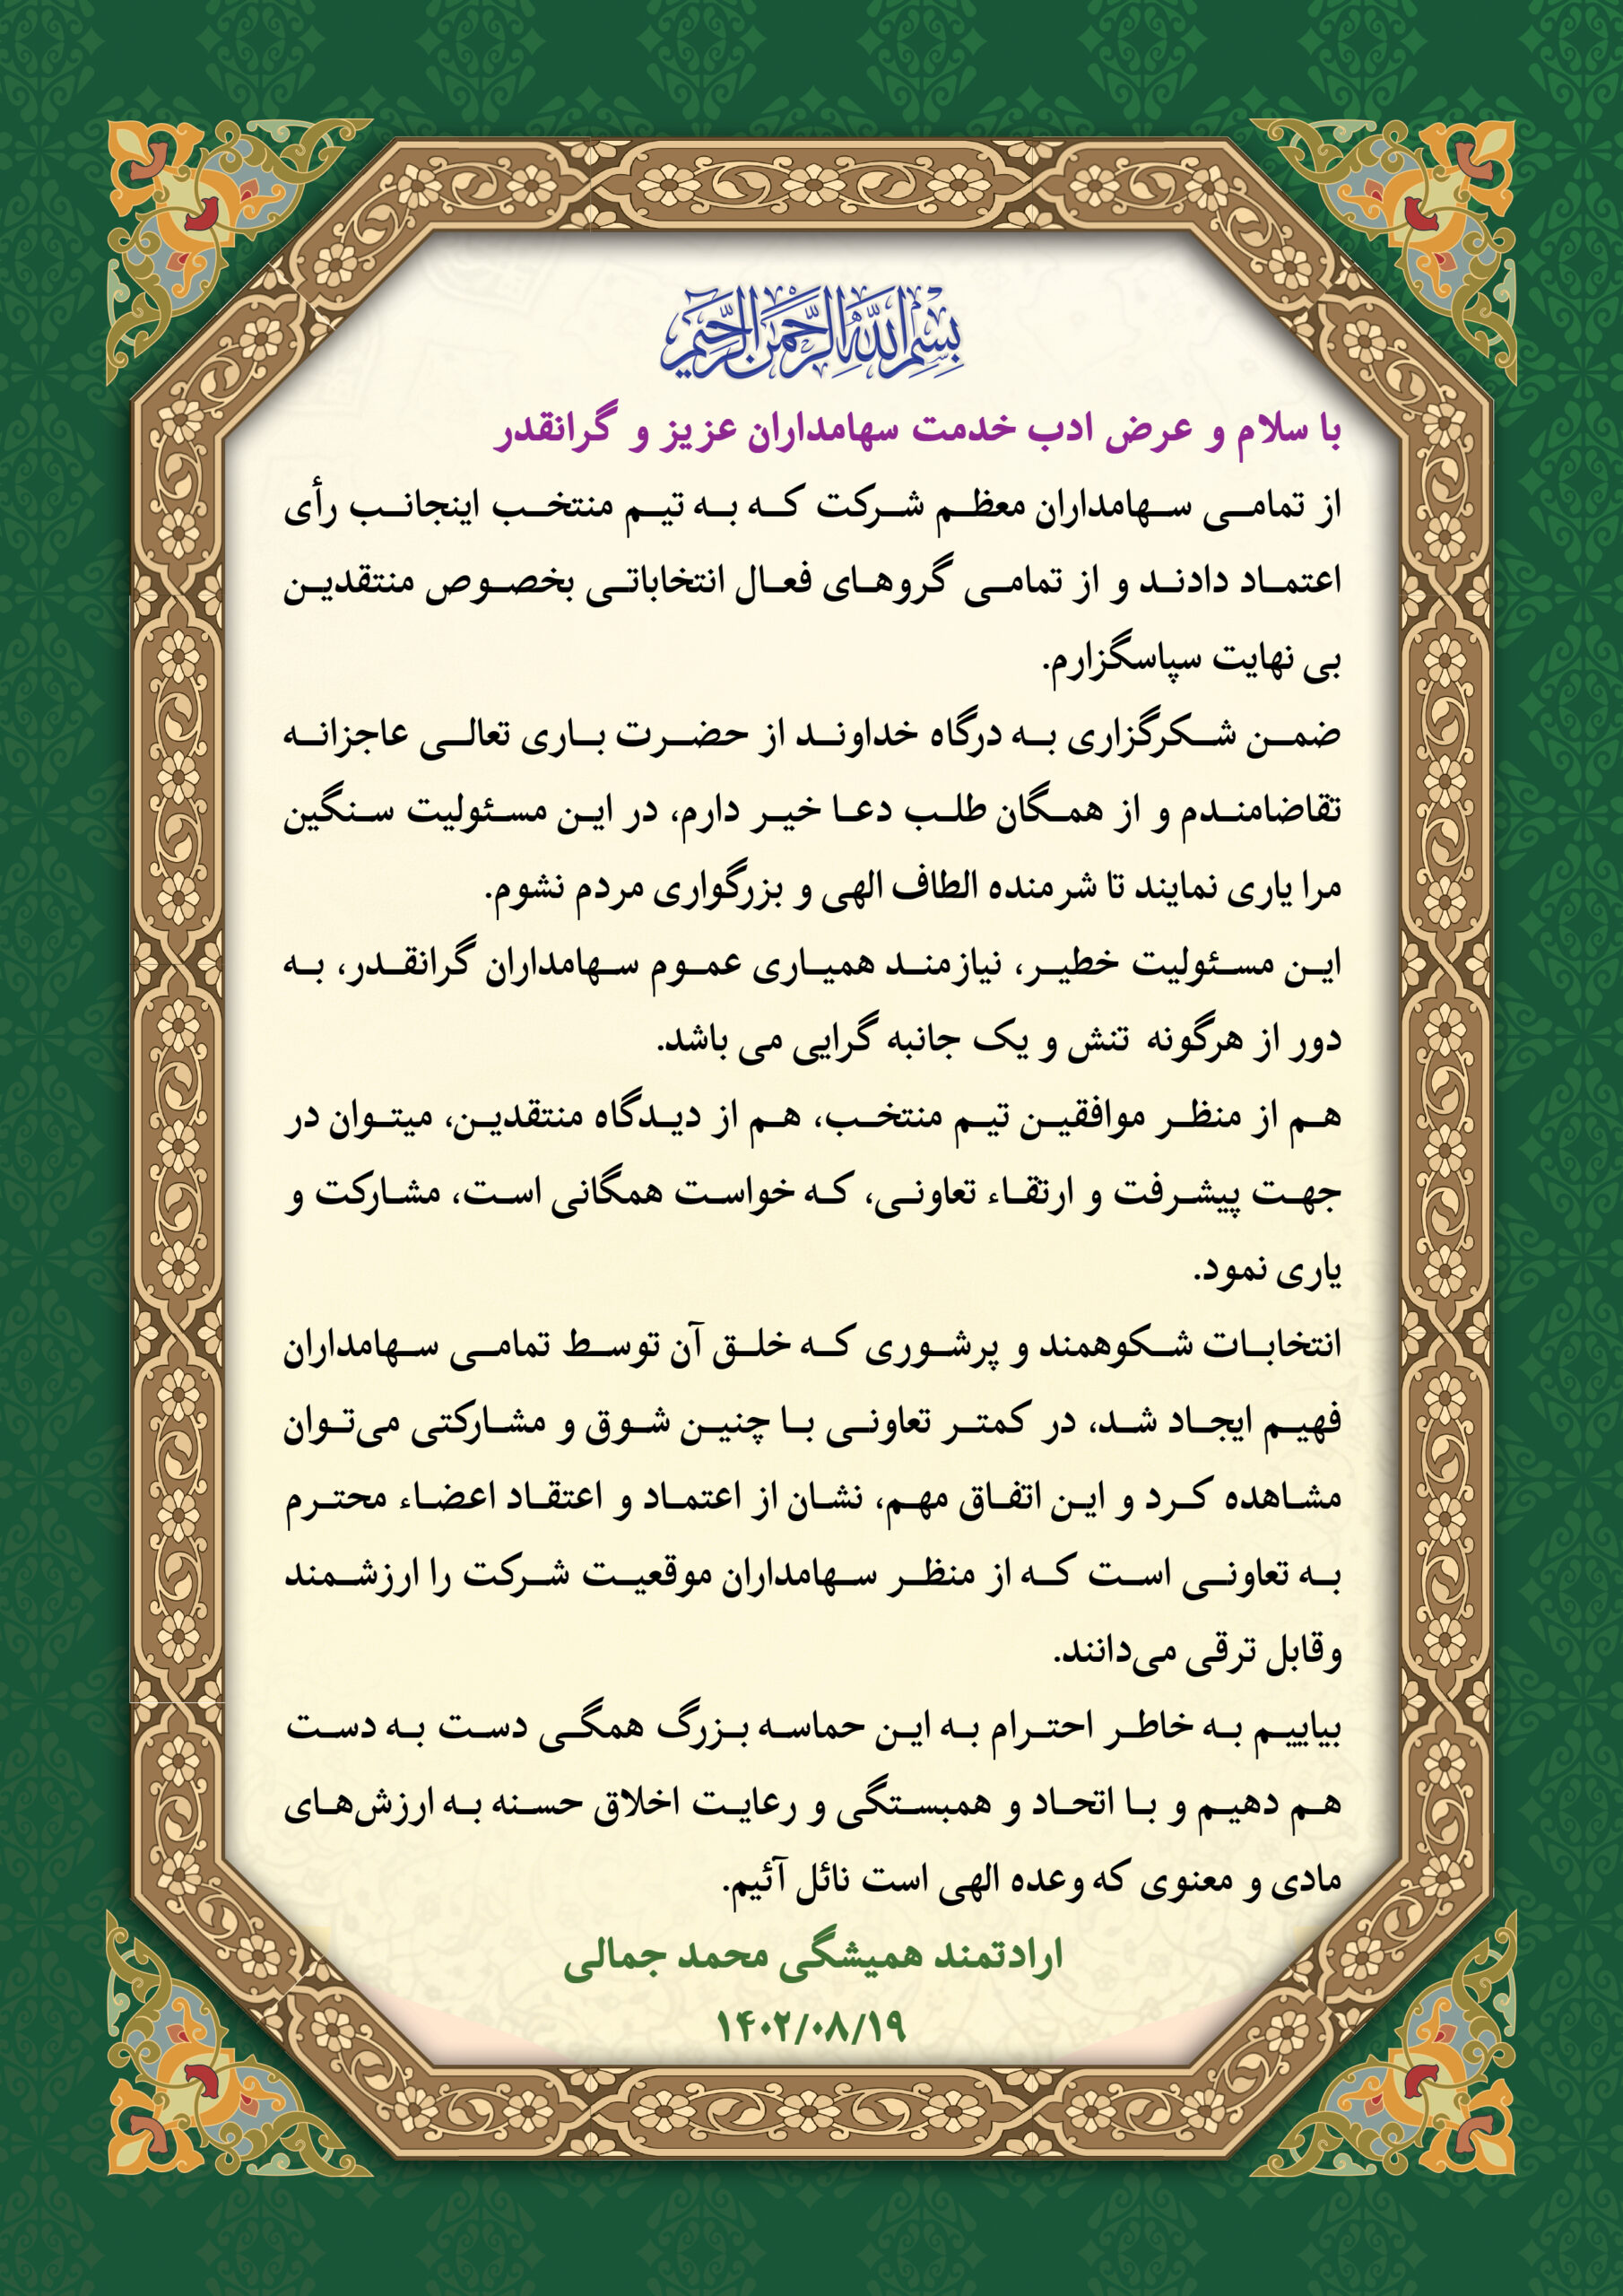 بسم الله الرحمن الرحیم
با سلام و عرض ادب خدمت سهامداران عزیز و گرانقدر
از تمامی سهامداران معظم شرکت که به تیم منتخب اینجانب رأی
اعتماد دادند و از تمامی گروهای فعال انتخاباتی بخصوص منتقدین
بی نهایت سپاسگزارم.
ضمن شکرگزاری به درگاه خداوند از حضرت باری تعالی عاجزانه
تقاضامندم و از همگان طلب دعا خیر دارم، در این مسئولیت سنگین
مرا یاری نمایند تا شرمنده الطاف الهی و بزرگواری مردم نشوم.
این مسئولیت خطیر، نیازمند همیاری عموم سهامداران گرانقدر، به
دور از هرگونه تنش و یک جانبه گرایی می باشد.
هم از منظر موافقین تیم منتخب، هم از دیدگاه منتقدین، میتوان در
جهت پیشرفت و ارتقاء تعاونی، که خواست همگانی است، مشارکت و
یاری نمود.
انتخابات شکوهمند و پرشوری که خلق آن توسط تمامی سهامداران
فهیم ایجاد شد، در کمتر تعاونی با چنین شوق و مشارکتی می‌توان
مشاهده کرد و این اتفاق مهم، نشان از اعتماد و اعتقاد اعضاء محترم
به تعاونی است که از منظر سهامداران موقعیت شرکت را ارزشمند
وقابل ترقی می‌دانند.
بیاییم به خاطر احترام به این حماسه بزرگ همگی دست به دست
هم دهیم و با اتحاد و همبستگی و رعایت اخلاق حسنه به ارزش‌های
مادی و معنوی که وعده الهی است نائل آئیم.
ارادتمند همیشگی محمد جمالی
۱۴۰۲/۰۸/۱۹